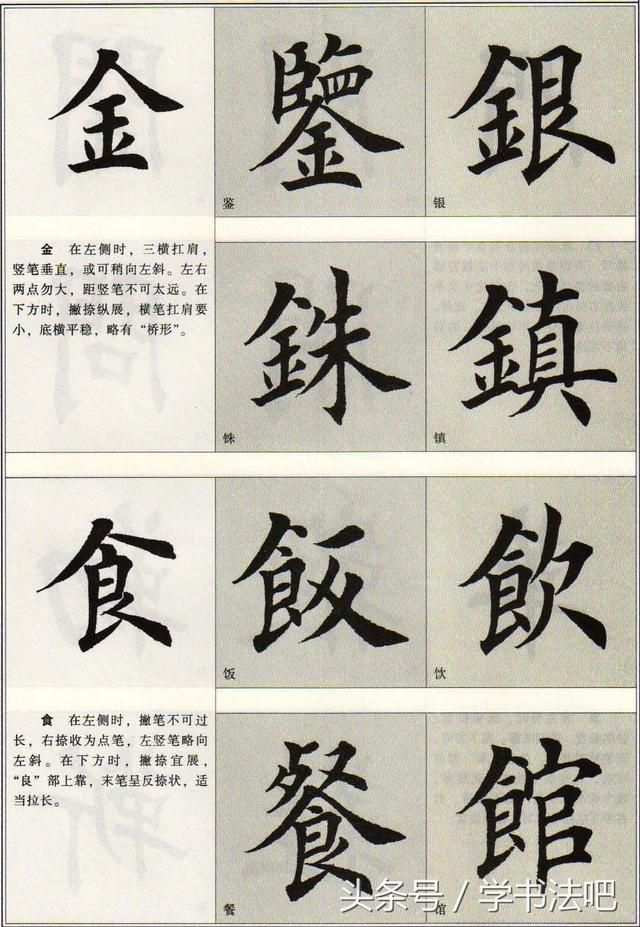 金
鑒
銀
鉴
银
金 在左侧时，三横扛肩，
竖笔垂直，或可稍向左斜。左右
两点勿大，距竖笔不可太远。在
下方时，撇捺纵展，横笔扛肩要
小，底横平稳，略有“桥形”。
銖
鎮
铢
镇
食
飯
飲
饭
饮
食 在左侧时，撇笔不可过
长，右捺收为点笔，左竖笔略向
左斜。在下方时，撇捺宜展，
“良”部上靠，末笔呈反捺状，适
当拉长。
餐
館
餐
馆
头条号／学书法吧